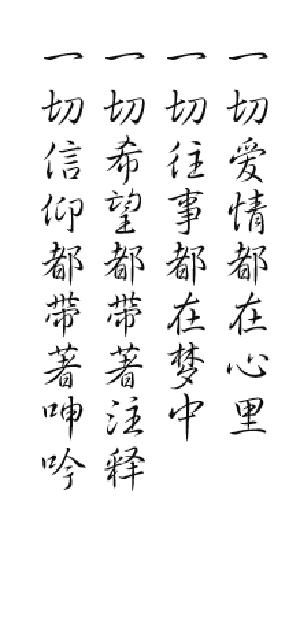 一切爱情都在心里
一切往事都在梦中
一切希望都带著注释
一切信仰都带著呻吟